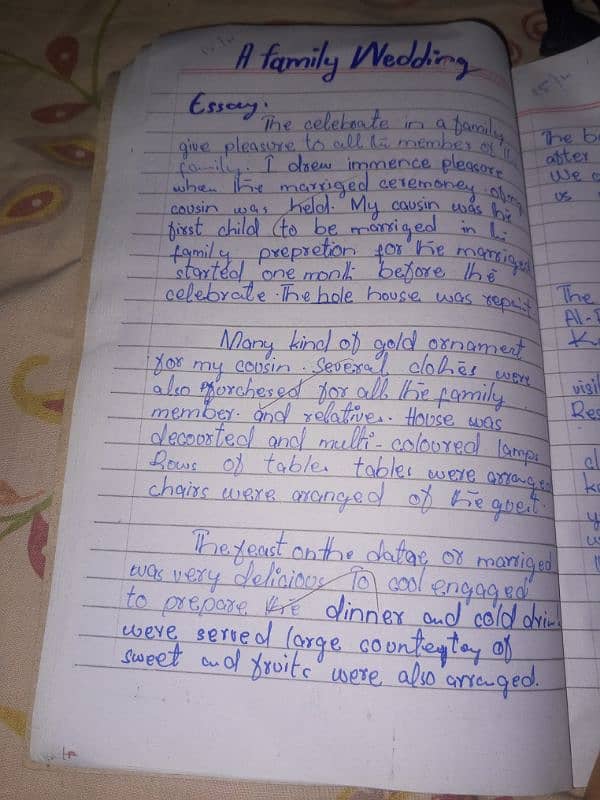 A family Wedding
Essay.
The celebrate in a family
give pleasure to all the member of
family. I drew immence pleasore
when the marriged ceremoney
cousin was held. My cousin was he
first child to be marriged in
family prepretion for the marriged
started one month before the
celebrate. The hole house was repeit
Many kind of gold ornament
for my cousin. Several clothes were
also porchesed for all the family
member. and relative. House was
decoorted and multi-coloured lamps
Rows of table. tables were arranged
chairs were aranged of the gueit.
The feast on the datge or marriged
was very delicious To cool engaged
to prepare the dinner and cold drin
were served large counteytoy of
sweet and fruits were also arranged.
The b
after
We
us
The
Al-
K
visi
Res
al
k
y
u